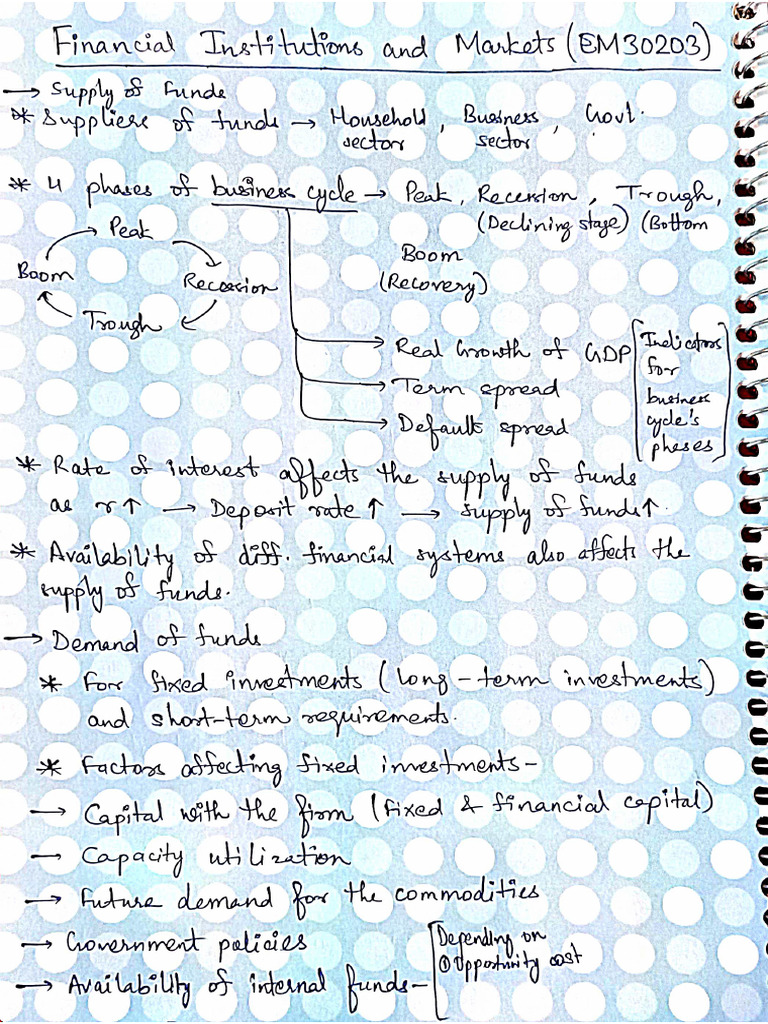 Financial Institutions and Markets (EM30203)
→ Supply of Funds
* Suppliers of funds → Household sector, Business sector, Govt.
* 4 phases of business cycle → Peak, Recession, Trough,
(Declining stage) (Bottom
Boom
(Recovery)
Peak
Boom
Recession
Trough
→ Real Growth of GDP
→ Term spread
→ Default spread
[Indicators
for
business
cycle's
phases]
* Rate of interest affects the supply of funds
as r↑ → Deposit rate ↑ → supply of funds↑.
* Availability of diff. financial systems also affects the
supply of funds.
→ Demand of funds
* For fixed investments (long-term investments)
and short-term requirements.
* Factors affecting fixed investments-
→ Capital with the firm (fixed & financial capital)
→ Capacity utilization
→ Future demand for the commodities
→ Government policies
→ Availability of internal funds-
[Depending on
① Opportunity cost